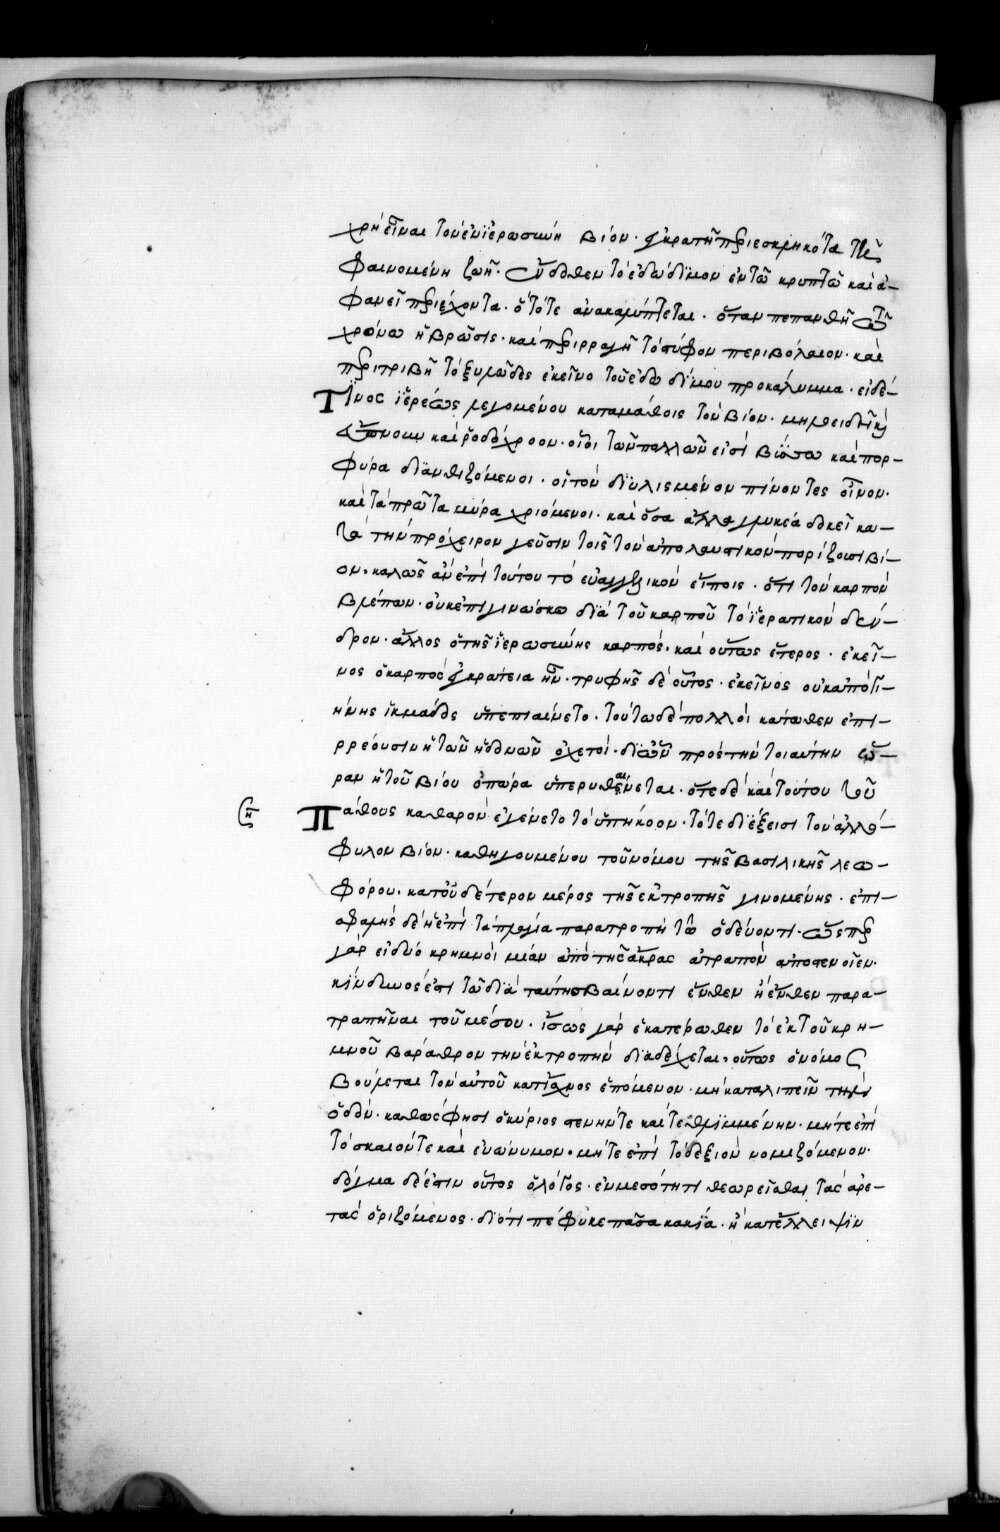 χρὴ εἶναι τὸν ἐν ἱερωσύνῃ βίον· ἐγκρατῆ περιεσκληκότα τῆς
φαινομένη ζωῆ· ἔνδοθεν τὸ ἐδώδιμον ἐν τῶ κρυπτῶ καὶ ἀ–
φανεῖ περιέχοντα· ὃ τότε ἀνακαλύπτεται· ὅταν πεπανθῆ τῶ
χρόνω ἡ βρῶσις· καὶ περιρραγῆ τὸ στύφον περιβόλαιον· καὶ
περιτριβῆ τὸ ξυλῶδες ἐκεῖνο τοῦ ἐδωδίμου προκάλυμμα· εἰ δέ–
τινος ἱερέως λεγομένου καταμάθοις τὸν βίον· μηλοειδῆ καὶ
εὔπνουν καὶ ῥοδόχροον· οἷοι τῶν πολλῶν εἰσὶ βύσσω καὶ πορ–
φύρα διανθιζόμενοι· οἱ τὸν διυλισμένον πίνοντες οἶνον·
καὶ τὰ πρῶτα μύρα χριόμενοι· καὶ ὅσα ἄλλα γλυκέα δοκεῖ κα–
τὰ τὴν πρόχειρον γεῦσιν τοῖς τὸν ἀπολαυστικὸν πορίζουσι βί–
ον· καλῶς ἂν ἐπὶ τούτου τὸ εὐαγγελικὸν εἴποις· ὅτι τὸν καρπὸν
βλέπων· οὐκ ἐπιγινώσκω διὰ τοῦ καρποῦ τὸ ἱερατικὸν δέν–
δρον· ἄλλος ὁ τῆς ἱερωσύνης καρπός· καὶ οὗτος ἕτερος· ἐκεῖ–
νος ὁ καρπὸς ἐγκράτεια ἦν· τρυφῆς δὲ οὗτος· ἐκεῖνος οὐκ ἀπὸ γη–
ήνης ἰκμάδος ὑπεπιαίνετο· τούτω δὲ πολλοὶ κάτωθεν ἐπι–
ρρέουσιν ἡ τῶν ἡδονῶν ὀχετοί· δι ὧν πρὸς τὴν τοιαύτην ὥ–
ραν ἡ τοῦ βίου ὀπώρα ὑπερυθραίνεται· ὅτε δὲ καὶ τούτου τοῦ
πάθους καθαρὸν ἐγένετο τὸ ὑπήκοον· τότε διέξεισι τὸν ἀλλό–
φυλον βίον· καθηγουμένου τοῦ νόμου τῆς βασιλικῆς λεω–
φόρου· κατ οὐδέτερον μέρος τῆς ἐκτροπῆς γινομένης· ἐπι–
σφαλὴς δὲ ἡ ἐπὶ τὰ πλάγια παρατροπὴ τῶ ὁδεύοντι· ὥσπερ
γὰρ εἰ δύο κρημνοὶ μίαν ἀπὸ τῆς ἄκρας ἀτραπὸν ἀποστενοῖεν·
κίνδυνός ἐστι τῶ διὰ ταύτης βαίνοντι ἔνθεν ἢ ἔνθεν παρα–
τραπῆναι τοῦ μέσου· ἴσως γὰρ ἑκατέρωθεν τὸ ἐκ τοῦ κρη–
μνοῦ βάραθρον τὴν ἐκτροπὴν διαδέχεται· οὕτως ὁ νόμος
βούλεται τὸν αὐτοῦ κατ ἴχνος ἑπόμενον· μὴ καταλιπεῖν τὴν
ὁδόν· καθὼς φησὶ ὁ κύριος στενήν τε καὶ τεθλιμμένην· μήτε ἐπὶ
τὸ σκαιόν τε καὶ εὐώνυμον· μήτε ἐπὶ τὸ δεξιὸν νομιζόμενον·
δόγμα δέ ἐστιν οὗτος ὁ λόγος· ἐν μεσότητι θεωρεῖσθαι τὰς ἀρε–
τὰς ὁριζόμενος· διότι πέφυκε πᾶσα κακία· ἢ κατ ἔλλειψιν